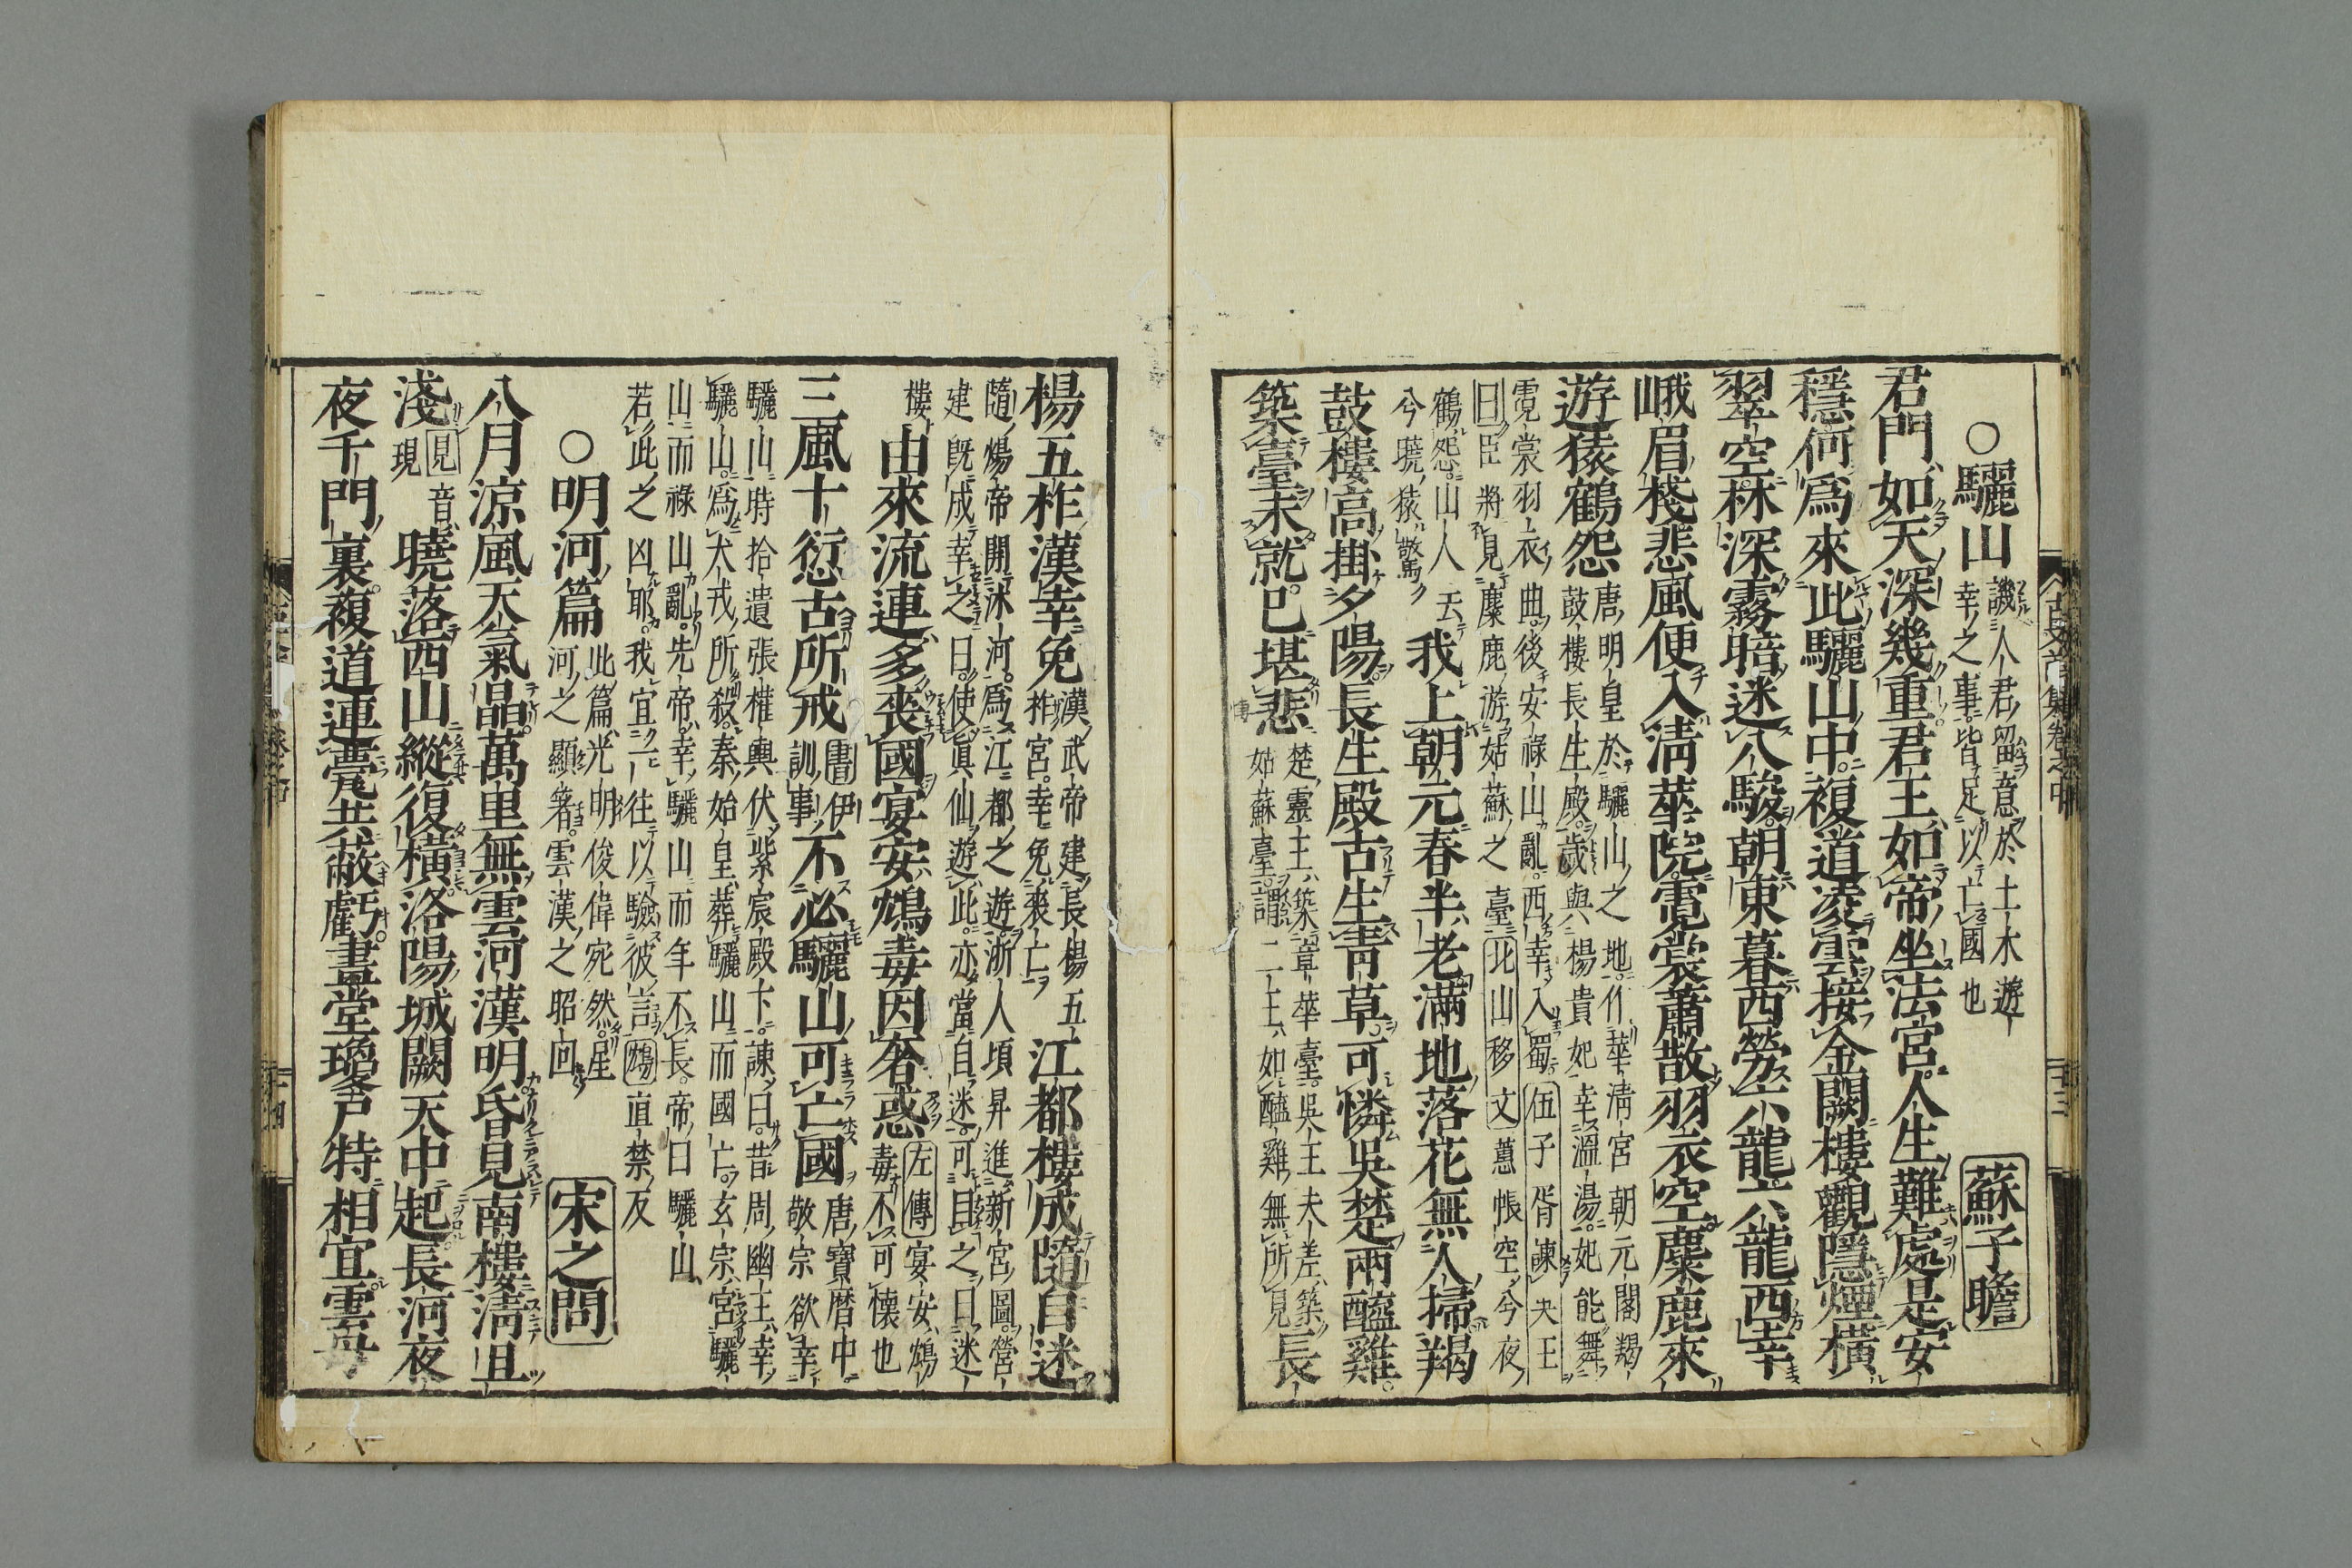 ○驪山
譏人君留意於土木遊
幸之事皆足以亡國也
蘇子瞻
君門如天深幾重君王如帝坐法宮人生難處是安
穩何爲來此驪山中複道凌雲接金闕樓觀隱煙橫
翠空林深霧暗迷八駿朝東暮西勞六龍六龍西幸
峨眉棧悲風便入清華院霓裳蕭散羽衣空麋鹿來
遊猿鶴怨
唐明皇於驪山之地作華清宮朝元閣羯
鼓樓長生殿歲與楊貴妃幸溫湯妃能舞
霓裳羽衣曲後安祿山亂西幸入蜀伍子胥諫夫王
曰臣將見麋鹿游姑蘇之臺北山移文蕙帳空兮夜
鶴怨山人去
兮曉猿驚
我上朝元春半老滿地落花無人掃羯
鼓樓高掛夕陽長生殿古生青草可憐吳楚兩醯雞
築臺未就已堪悲
楚靈王築章華臺吳王夫差築
姑蘇臺謂二王如醯雞無所見
長
古文前集卷之中
十三
楊五柞漢幸免
漢武帝建長楊五
柞宮幸免喪亡
江都樓成隨自迷
隨煬帝開汴河爲江都之遊浙人項昇進新宮圖營
建旣成幸之曰使眞仙遊此亦當自迷可目之曰迷
樓
由來流連多喪國宴安鴆毒因奢惑
左傳宴安鴆
毒不可懷也
三風十愆古所戒
書伊
訓事
不必驪山可亡國
唐寶曆中
敬宗欲幸
驪山時拾遺張權輿伏紫宸殿下諫曰昔周幽王幸
驪山爲犬戎所殺秦始皇葬驪山而國亡玄宗宮驪
山而祿山亂先帝幸驪山而年不長帝曰驪山
若此之凶耶我宜一往以驗彼言鴆直禁反
○明河篇
此篇光明俊偉宛然星
河之顯著雲漢之昭回
宋之問
八月涼風天氣晶萬里無雲河漢明昏見南樓清且
淺
見音
現
曉落西山縱復橫洛陽城闕天中起長河夜
夜千門裏複道連甍共蔽虧畫堂瓊戶特相宜雲母
十四